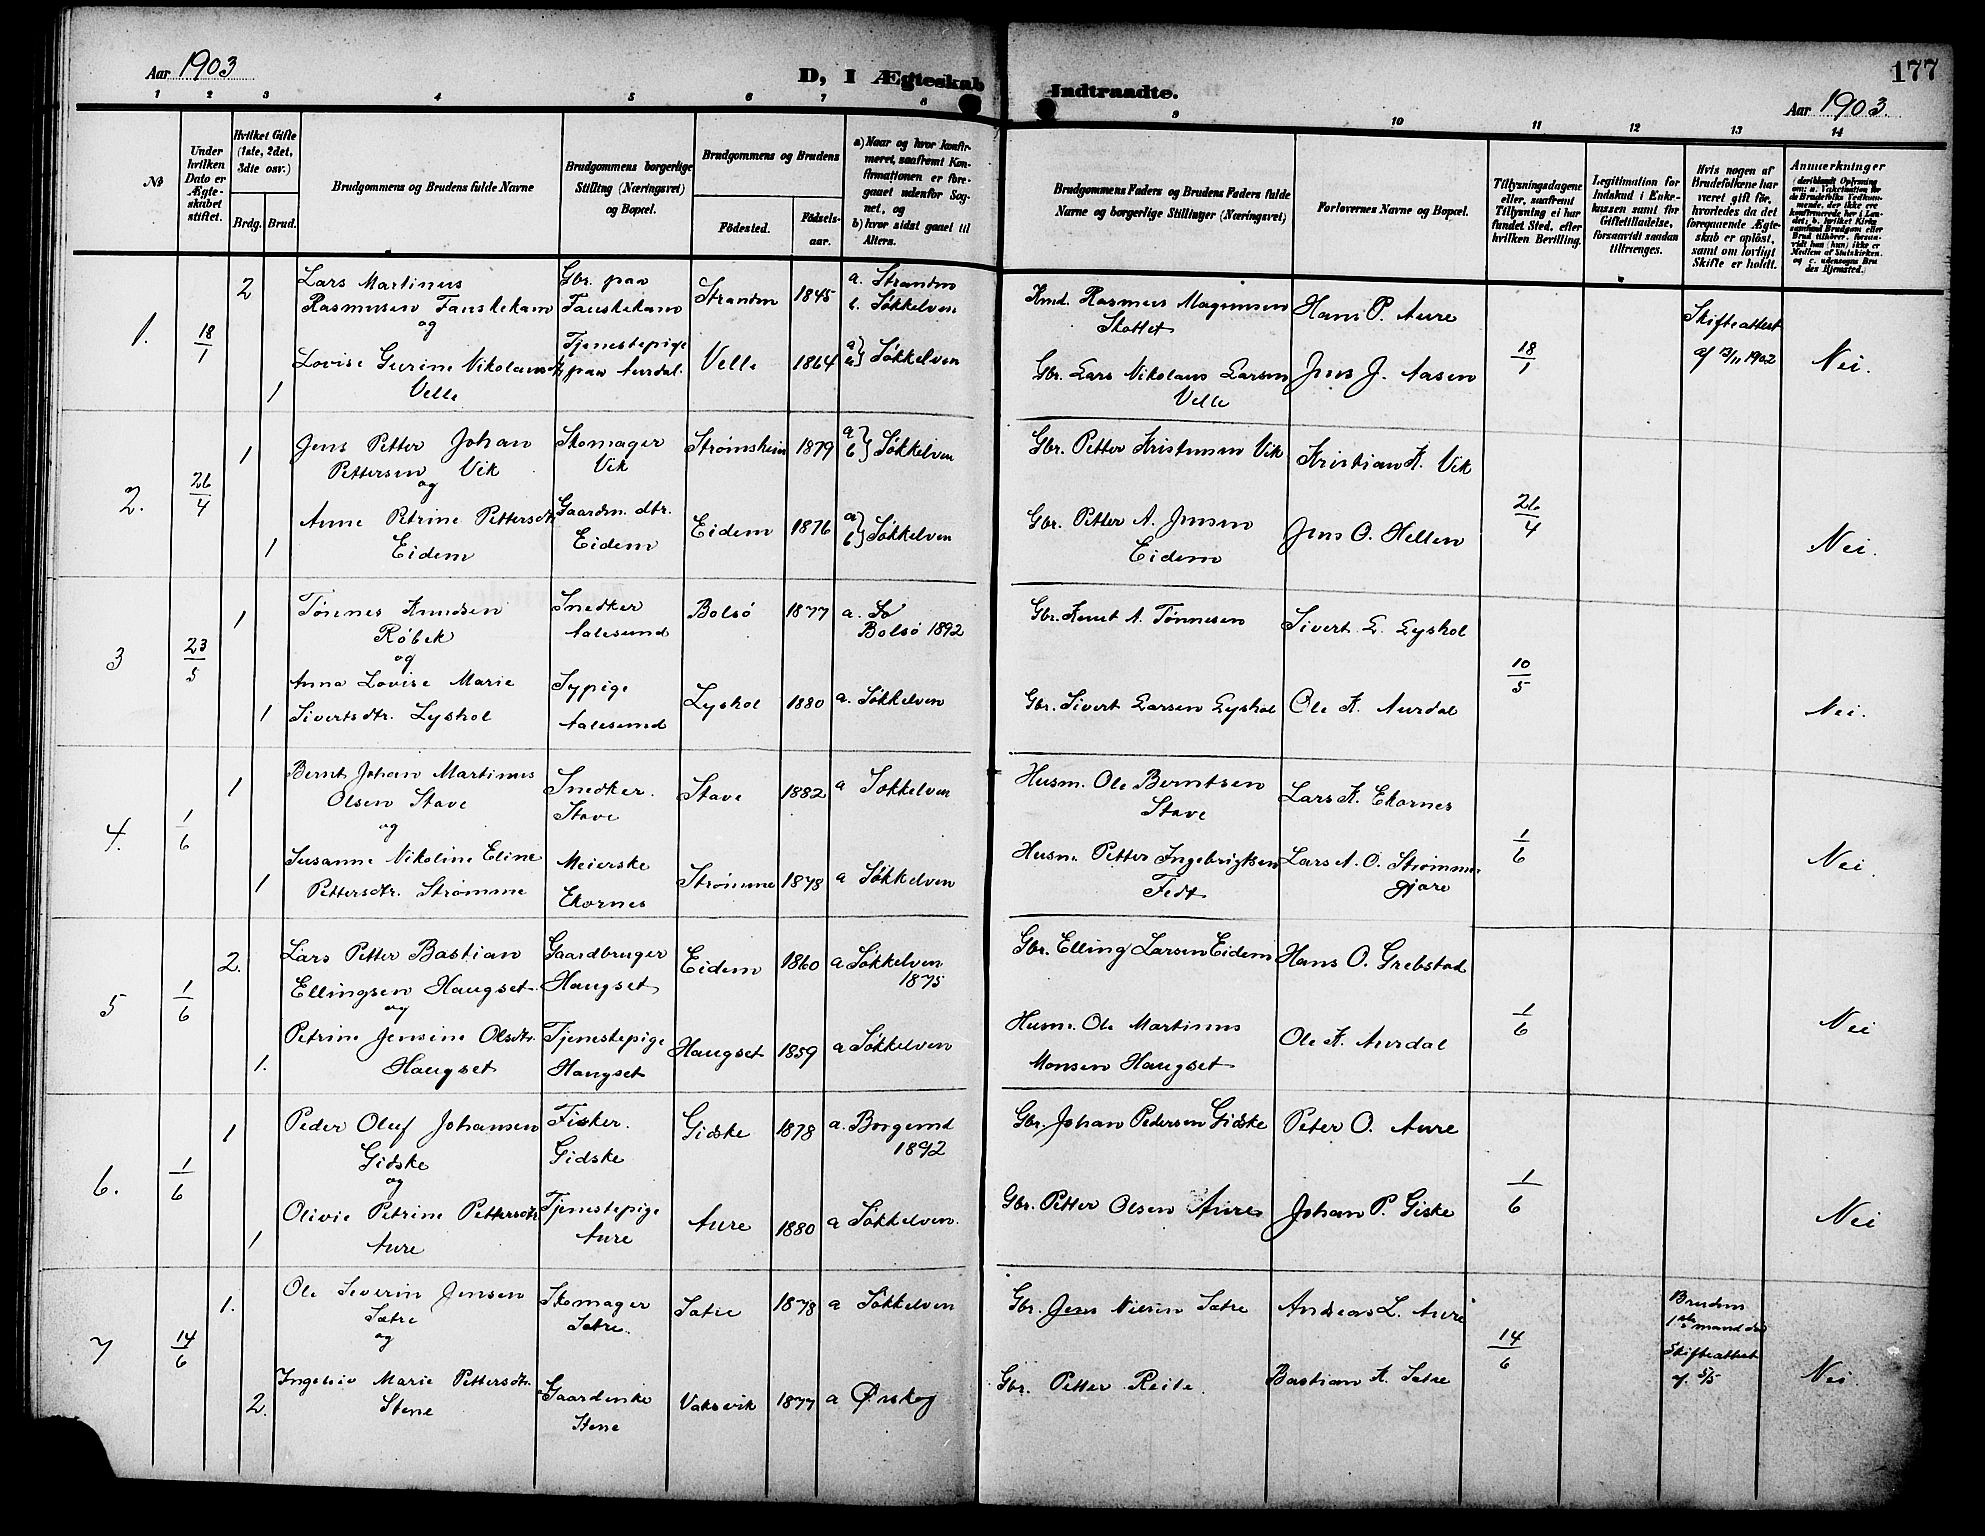 Aar 1903
D, I Ægteskab Indtraadte.
177
Aar 1903.
1 2 3 4 5 6 7 8 9 10 11 12 13 14
№
Under hvilken Dato er Ægteskabet stiftet.
Hvilket Gifte (1ste, 2det, 3die osv.)
Brdg. Brud.
Brudgommens og Brudens fulde Navne
Brudgommens borgerlige Stilling (Næringsvei) og Bopæl.
Brudgommens og Brudens
Födested.
Födselsaar.
a) Naar og hvor konfirmeret, saafremt Konfirmationen er foregaaet udenfor Sognet, og
b) hvor sidst gaaet til Alters.
Brudgommens Faders og Brudens Faders fulde Navne og borgerlige Stillinger (Næringsvei)
Forlovernes Navne og Bopæl.
Tillysningsdagene eller, saafremt Tillysning ei har fundet Sted, efter hvilken Bevilling.
Legitimation for Indskud i Enkekassen samt for Giftetilladelse, forsaavidt saadan tiltrænges.
Hvis nogen af Brudefolkene har været gift för, hvorledes da det foregaaende Ægteskab er oplöst, samt om lovligt Skifte er holdt.
Anmærkninger
1.
18/1
2
Lars Martinus
Rasmusen Fauskekam
og
Gbr. paa
Fauskekam
Stranden
1845
a. Stranden
b. Søkkelven
Kmd. Rasmus Magnusen
Skottet
Hans P. Aure
18/1
Skifteattest
af 13/11 1902
Nei.
1
Lovise Gurine Nikolausdtr
Velle
Tjenestepige
paa Aurdal.
Velle
1864
a) Søkkelven
Gbr. Lars Nikolaus Larsen
Velle
Jens J. Aasen
2.
26/4
1
Jens Petter Johan
Pettersen Vik
og
Skomager
Vik
Strømsheim
1879
a
b} Søkkelven
Gbr. Petter Kristensen Vik
Kristian K. Vik
26/4
Nei.
1
Anne Petrine Pettersdtr
Eidem
Gaardm. dtr.
Eidem
Eidem
1876
a
b} Søkkelven
Gbr. Petter A. Jensen
Eidem
Jens O. Hellen
3
23/5
1
Tønnes Knudsen
Røbek
og
Snedker
Aalesund
Bolsø
1877
a.
Bolsø 1892
Gbr. Knut A. Tønnesen
Sivert L. Lyshol
10/5
Nei.
1
Anna Lovise Marie
Sivertsdtr. Lyshol
Sypige
Aalesund
Lyshol
1880
a. Søkkelven
Gbr. Sivert Larsen Lyshol
Ole K. Aurdal
4.
1/6
1
Bernt Johan Martinus
Olsen Stave
og
Snedker.
Stave
Stave
1882
a Søkkelven
Husm. Ole Berntsen
Stave
Lars K. Ekornes
1/6
Nei
1
Susanne Nikoline Eline
Pettersdtr. Strømme
Meierske
Ekornes
Strømme
1878
a Søkkelven
Husm. Petter Ingebrigtsen
Fedt
Lars A. O. Strømme-
gjære
5
1/6
2.
Lars Petter Bastian
Ellingsen Haugset.
og
Gaardbruger
Haugset
Eidem
1860
a Søkkelven
1875
Gbr. Elling Larsen Eidem
Hans O. Grebstad
1/6
Nei
1.
Petrine Jensine Olsdtr.
Haugset
Tjenestepige
Haugset
Haugset
1859
a Søkkelven
Husm. Ole Martinus
Monsen Haugset
Ole K. Aurdal
6.
1/6
1
Peder Oluf Johansen
Gidske
og
Fisker.
Gidske
Gidske
1878
a. Borgund
1892
Gbr. Johan Pedersen Gidske
Peter O. Aure
1/6
Nei
1
Olivie Petrine Pettersdtr
Aure
Tjenestepige
Aure
Aure
1880
a Søkkelven.
Gbr. Petter Olsen Aure
Johan P. Giske
7
14/6
1.
Ole Severin Jensen
Sætre
og
Skomager
Sætre.
Sætre
1878
a Søkkelven
Gbr. Jens Nilsen Sætre
Andreas L. Aure
14/6
Brudens
1ste mand død
Skifteattest
af 5/5
Nei.
2.
Ingeleiv Marie Pettersdtr.
Stene
Gaardenke
Stene
Vaksvik
1877
a Ørskog
Gbr. Petter Reite.
Bastian K. Sætre